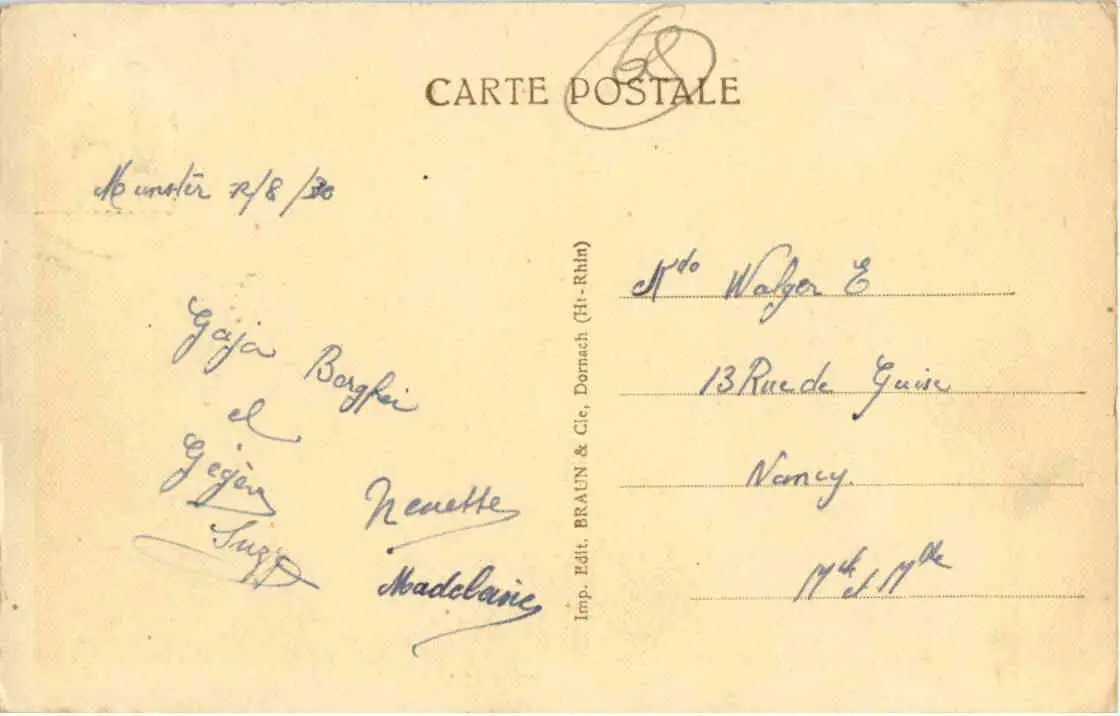 68
CARTE POSTALE
Munster 12/8/30
Gaja Borghei
et
Gégèn
Suzy
Nenette
Madeleine
Imp. Edit. BRAUN & Cie, Dornach (Ht-Rhin)
Walger E
13 Rue de Guise
Nancy.
Mthe / Mlle